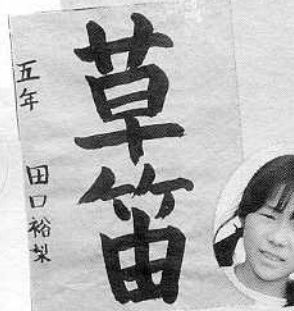 草笛
五年 田口裕梨